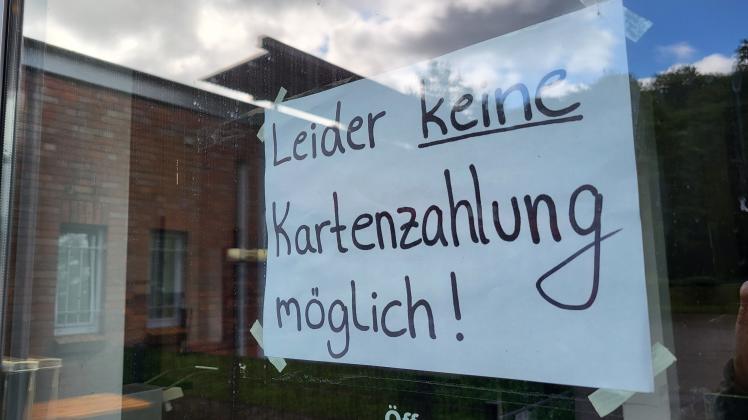 Leider keine
Kartenzahlung
möglich!
Öff